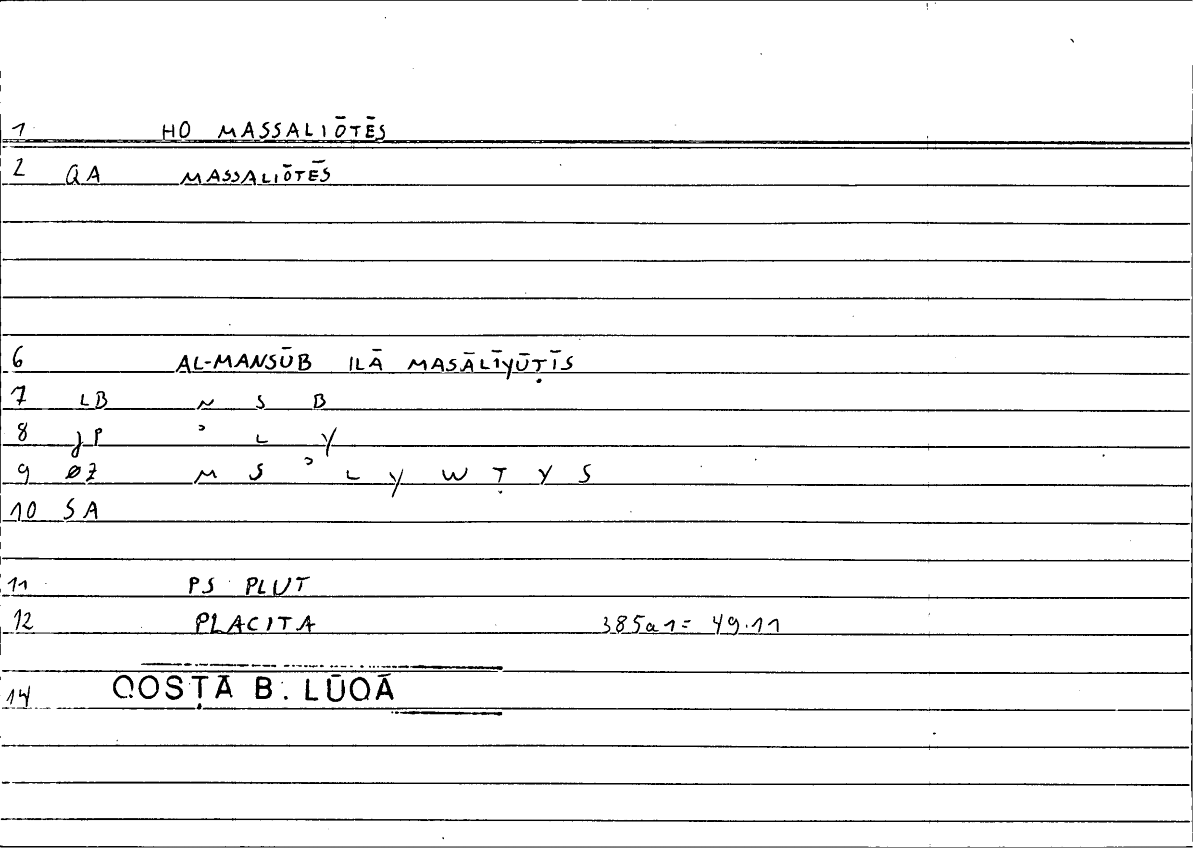 1 HO MASSALIŌTĒS
2 QA MASSALIŌTĒS
6 AL-MANSŪB ILĀ MASĀLĪYŪṬĪS
7 LB N S B
8 JP ʾ L Y
9 ØZ M S ʾ L Y W Ṭ Y S
10 SA
11 PS PLUT
12 PLACITA 385a1= 49.11
14 QOSṬĀ B. LŪQĀ